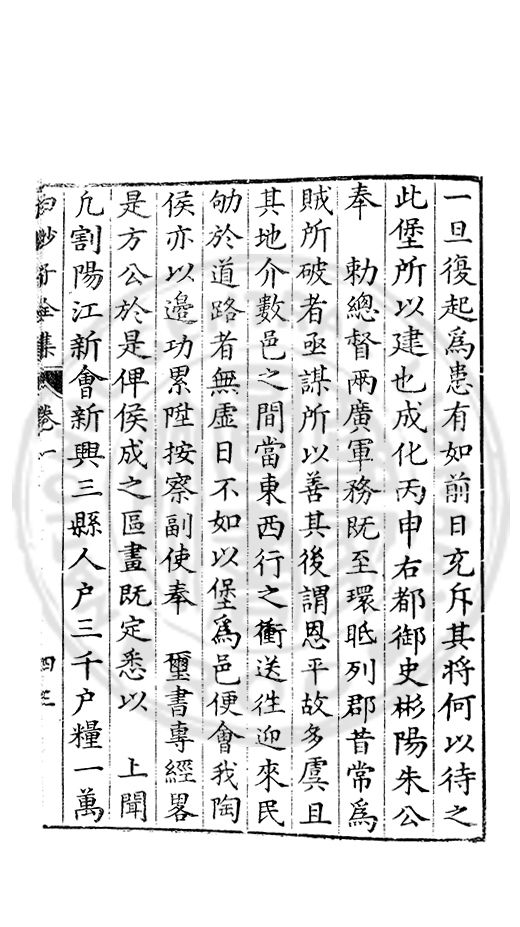 一旦復起爲患有如前日充斥其將何以待之
此堡所以建也成化丙申右都御史彬陽朱公
奉　勅總督兩廣軍務既至環眡列郡昔常爲
賊所破者亟謀所以善其後謂恩平故多虞且
其地介數邑之間當東西行之衝送徃迎來民
劬於道路者無虛日不如以堡爲邑便會我陶
侯亦以邉功累陞按察副使奉　璽書專經畧
是方公於是俾侯成之區畫既定悉以　上聞
凢割陽江新會新興三縣人户三千户糧一萬
白沙子全集　卷一　四三